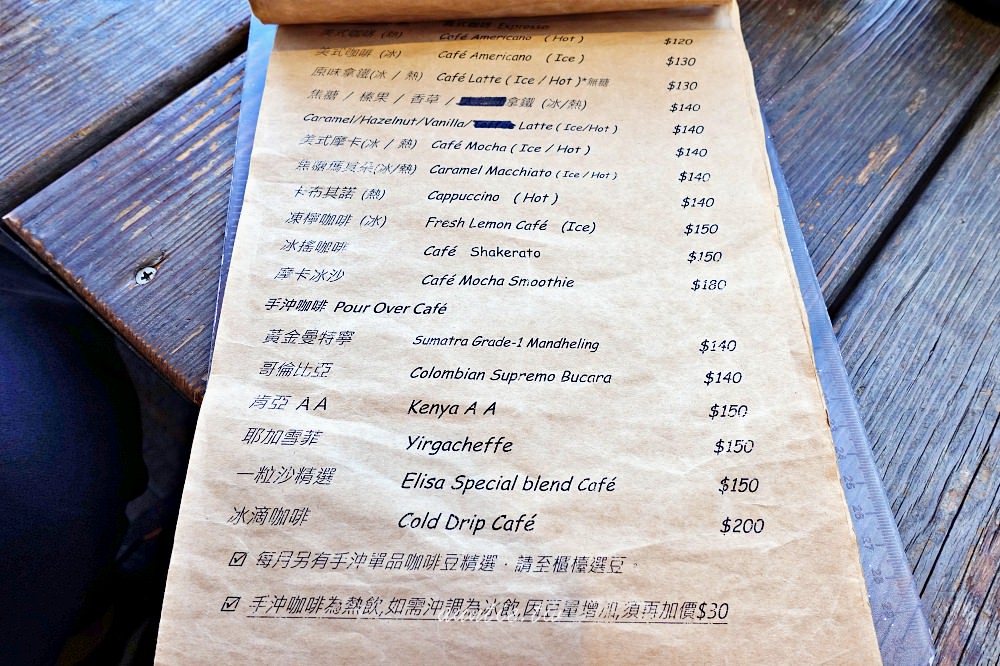 Espresso
美式咖啡 (熱) Café Americano ( Hot ) $120
美式咖啡 (冰) Café Americano ( Ice ) $130
原味拿鐵(冰 / 熱) Café Latte ( Ice / Hot )*無糖 $130
焦糖 / 榛果 / 香草 / 拿鐵 (冰/熱) $140
Caramel/Hazelnut/Vanilla/ Latte ( Ice/Hot ) $140
美式摩卡(冰 / 熱) Café Mocha ( Ice / Hot ) $140
焦糖瑪其朵(冰/熱) Caramel Macchiato ( Ice / Hot ) $140
卡布其諾 (熱) Cappuccino ( Hot ) $140
凍檸咖啡 (冰) Fresh Lemon Café (Ice) $150
冰搖咖啡 Café Shakerato $150
摩卡冰沙 Café Mocha Smoothie $180
手沖咖啡 Pour Over Café
黃金曼特寧 Sumatra Grade-1 Mandheling $140
哥倫比亞 Colombian Supremo Bucara $140
肯亞 A A Kenya A A $150
耶加雪菲 Yirgacheffe $150
一粒沙精選 Elisa Special blend Café $150
冰滴咖啡 Cold Drip Café $200
☑ 每月另有手沖單品咖啡豆精選,請至櫃檯選豆。
☑ 手沖咖啡為熱飲,如需沖調為冰飲,因豆量增加,須再加價$30